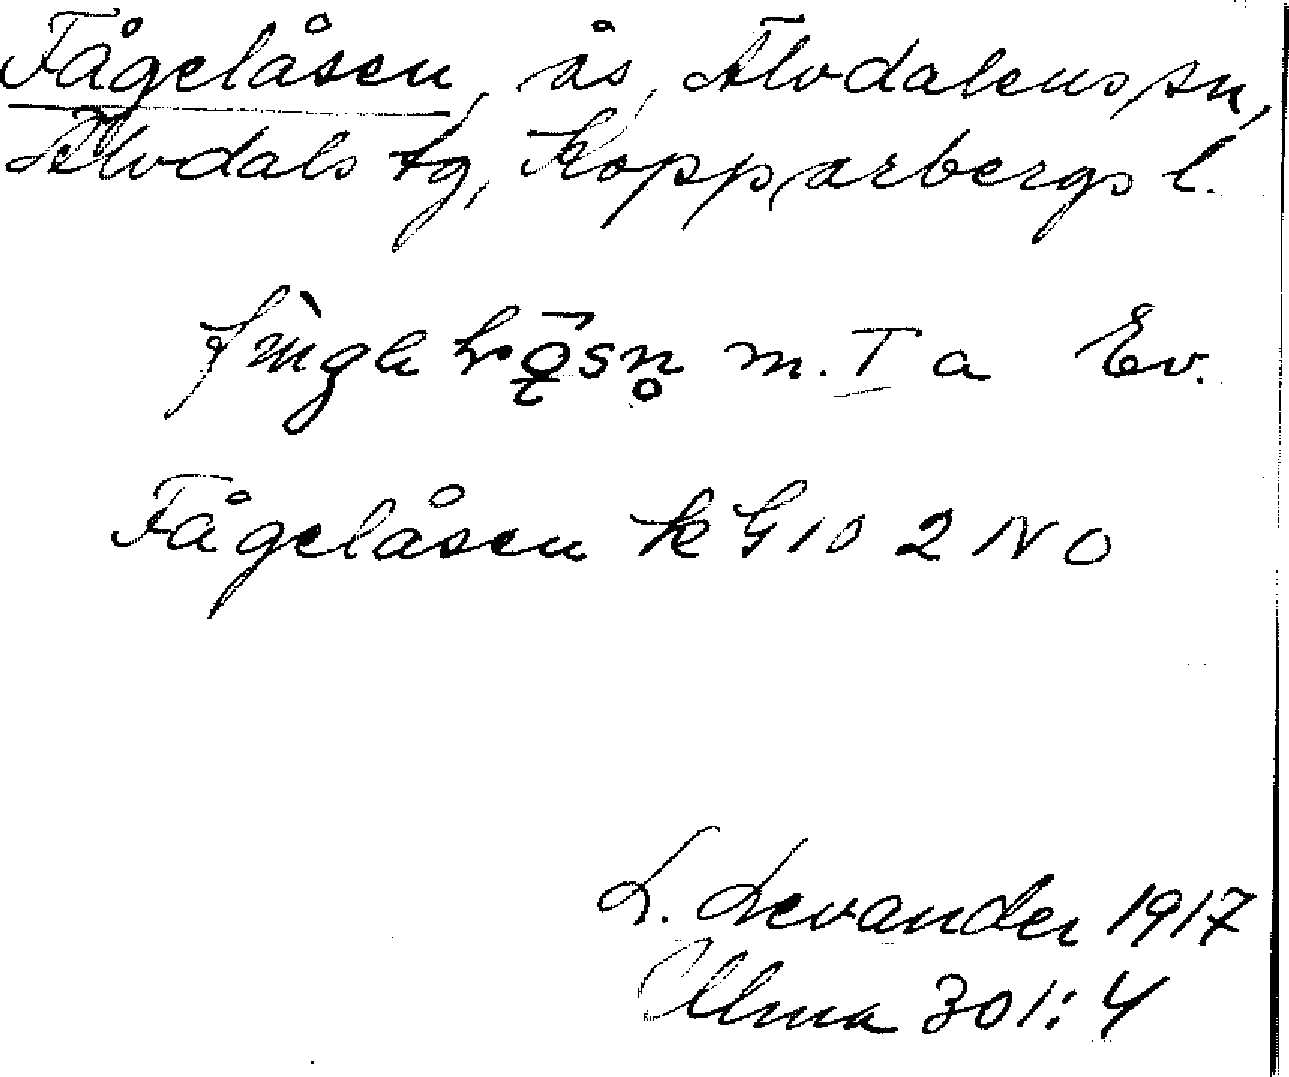 Fågelåsen, ås, Älvdalens sn,
Älvdals tg, Kopparbergs l.
m. I a Ev.
Fågelåsen k G 10 2 NO
L. Levander 1917
Ulma 301:4